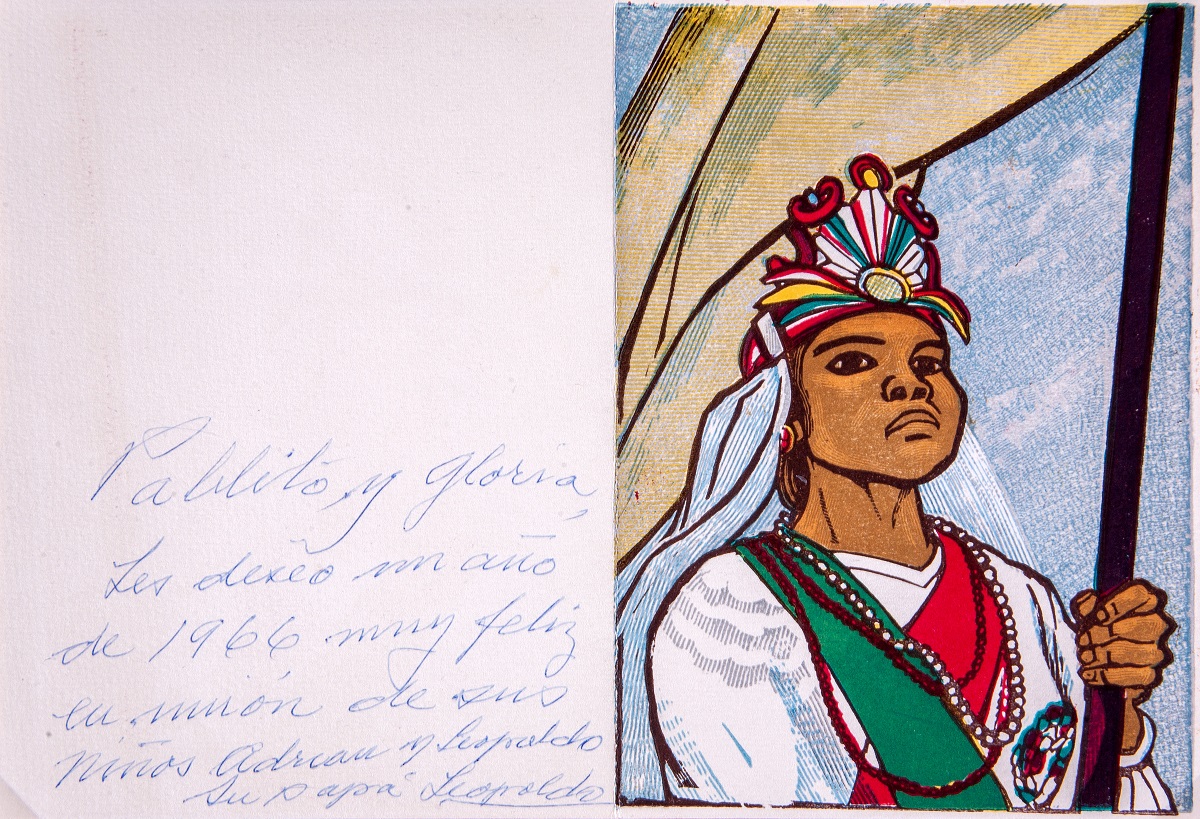 Pablito y Gloria,
Les deseo un año
de 1966 muy feliz
en unión de sus
niños Adrian y Leopoldo
Su papá Leopoldo